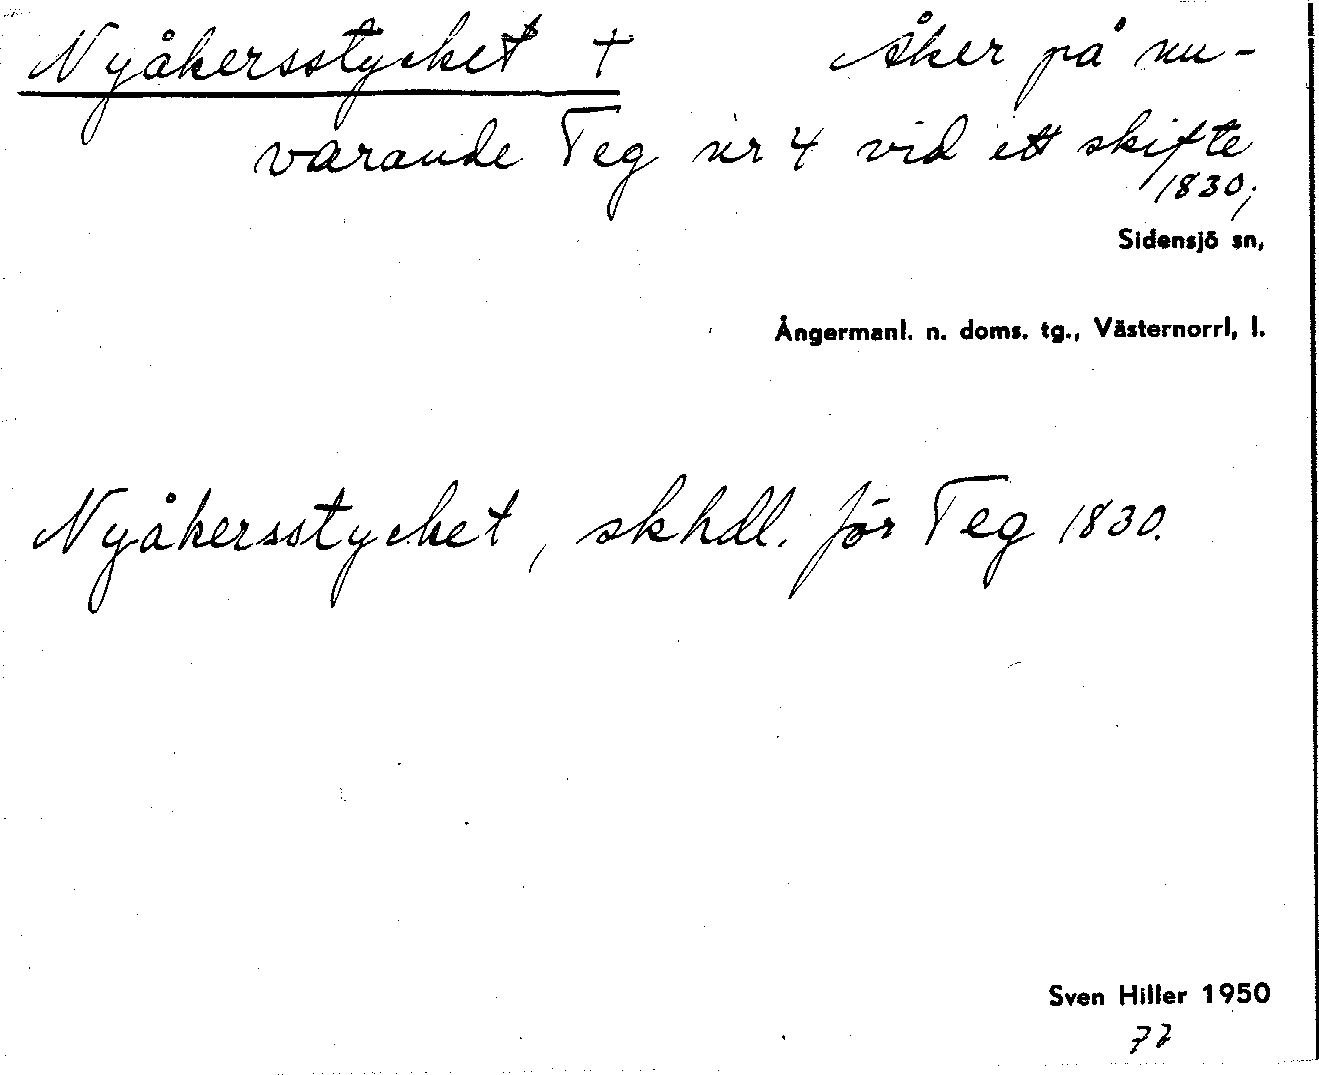 Nyåkersstycket † Åker på nu-
varande Teg nr 4 vid ett skifte
1830;
Sidensjö sn,
Ångermanl. n. doms. tg., Västernorrl, l.
Nyåkersstycket, skhdl. för Teg 1830.
Sven Hiller 1950